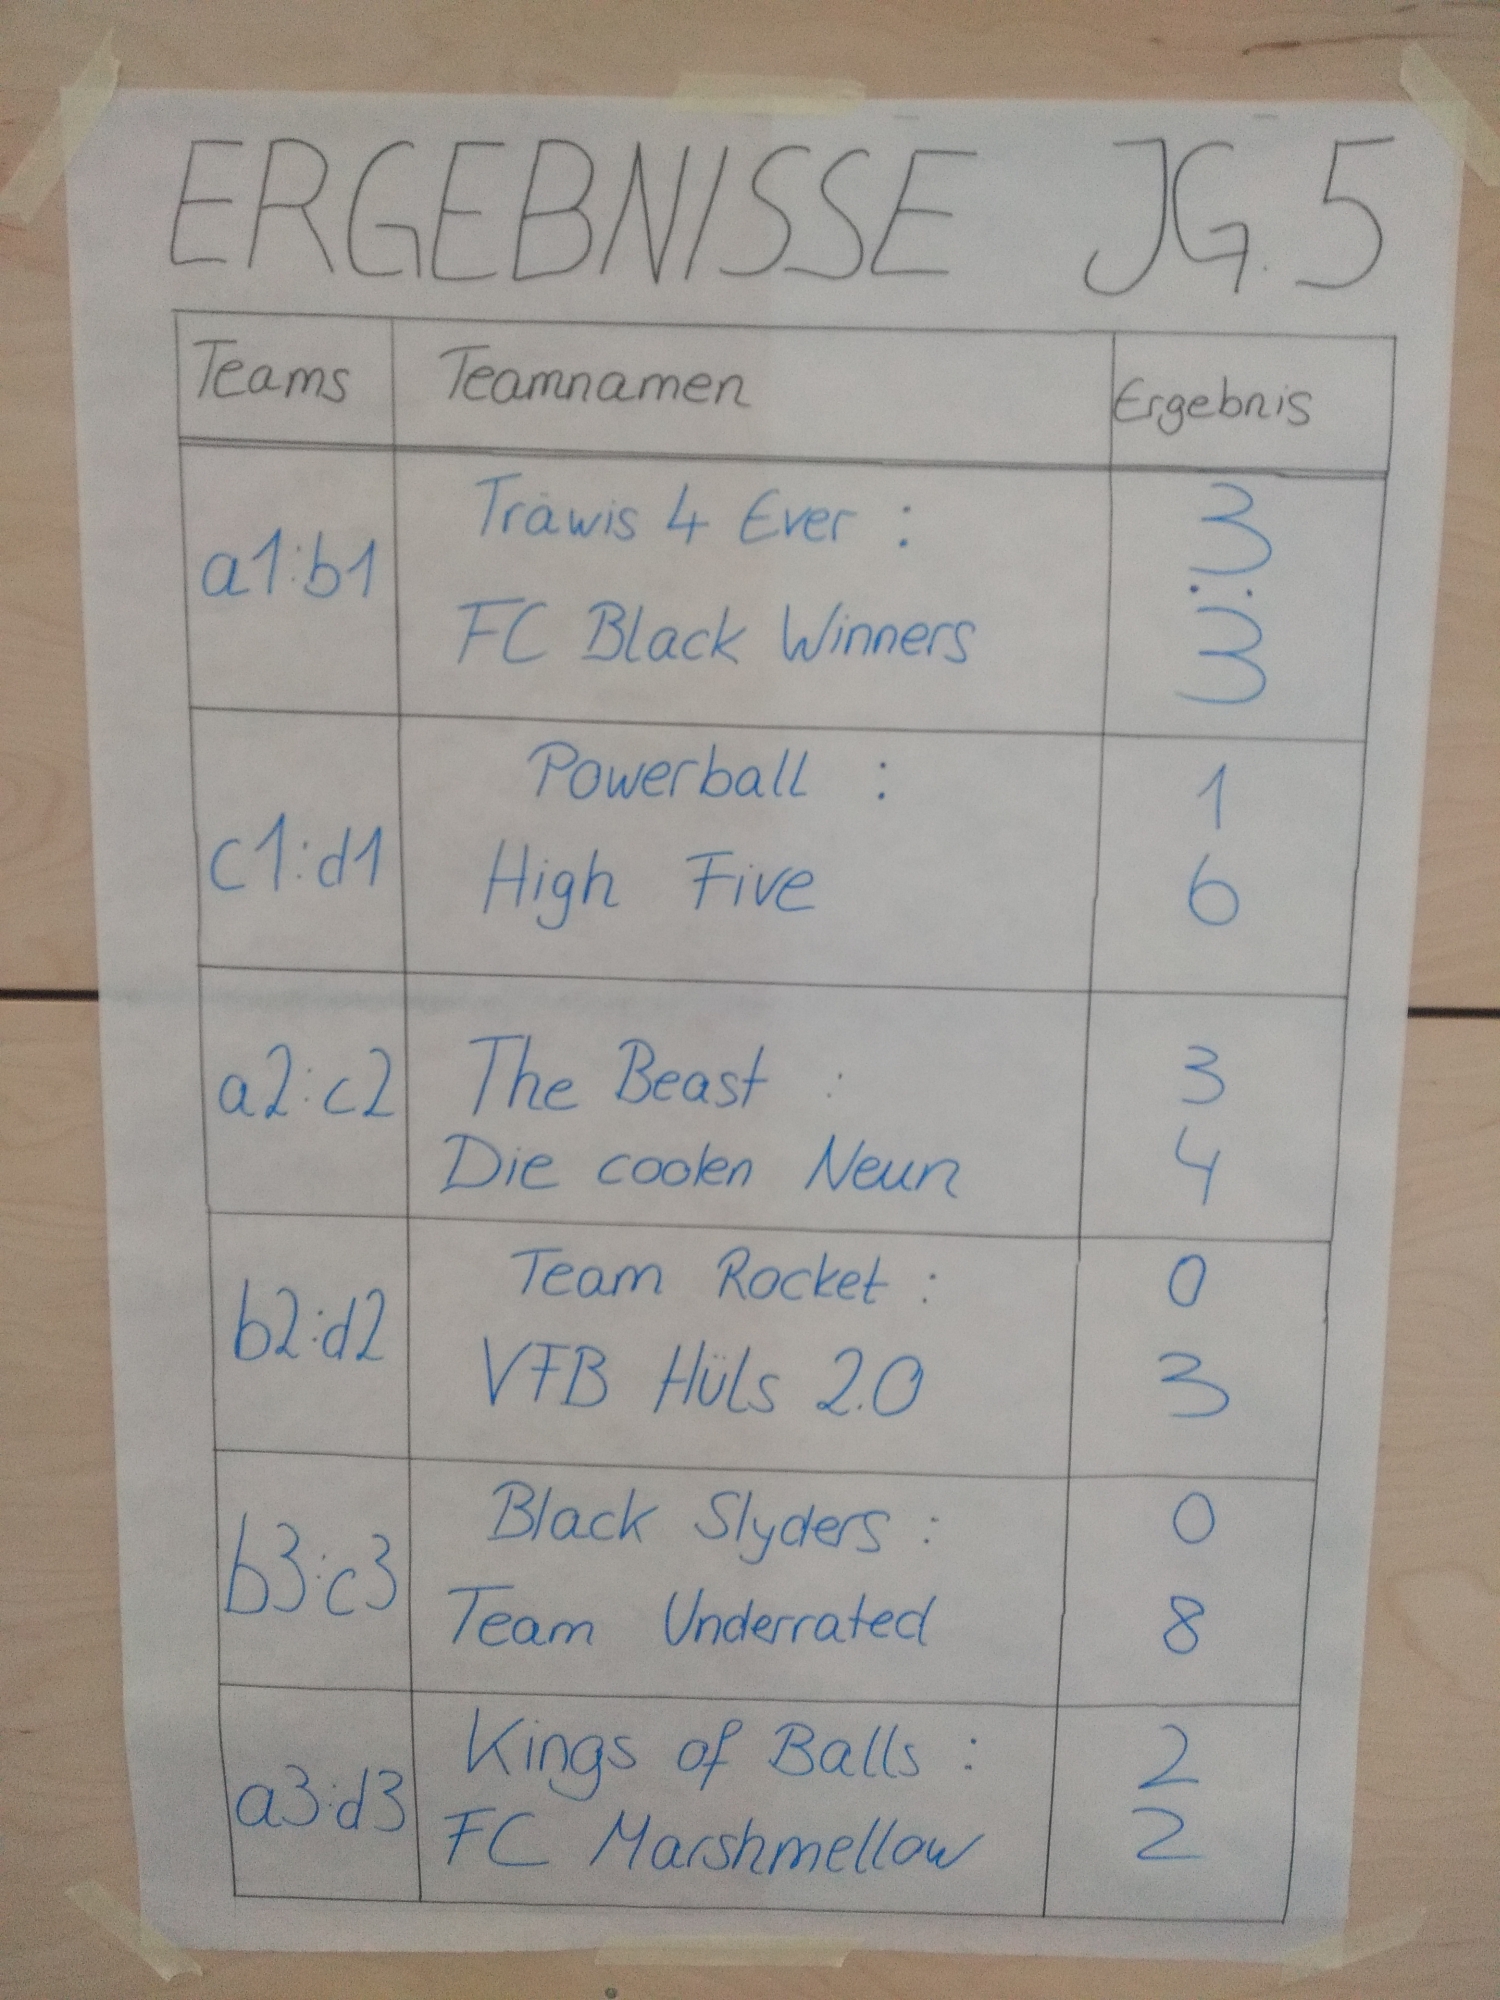 ERGEBNISSE JG. 5
Teams Teamnamen Ergebnis
a1:b1 Träwis 4 Ever : 3 :
FC Black Winners 3
c1:d1 Powerball : 1
High Five 6
a2:c2 The Beast : 3
Die coolen Neun 4
b2:d2 Team Rocket : 0
VFB Hüls 2.0 3
b3:c3 Black Slyders : 0
Team Underrated 8
a3:d3 Kings of Balls : 2
FC Marshmellow 2